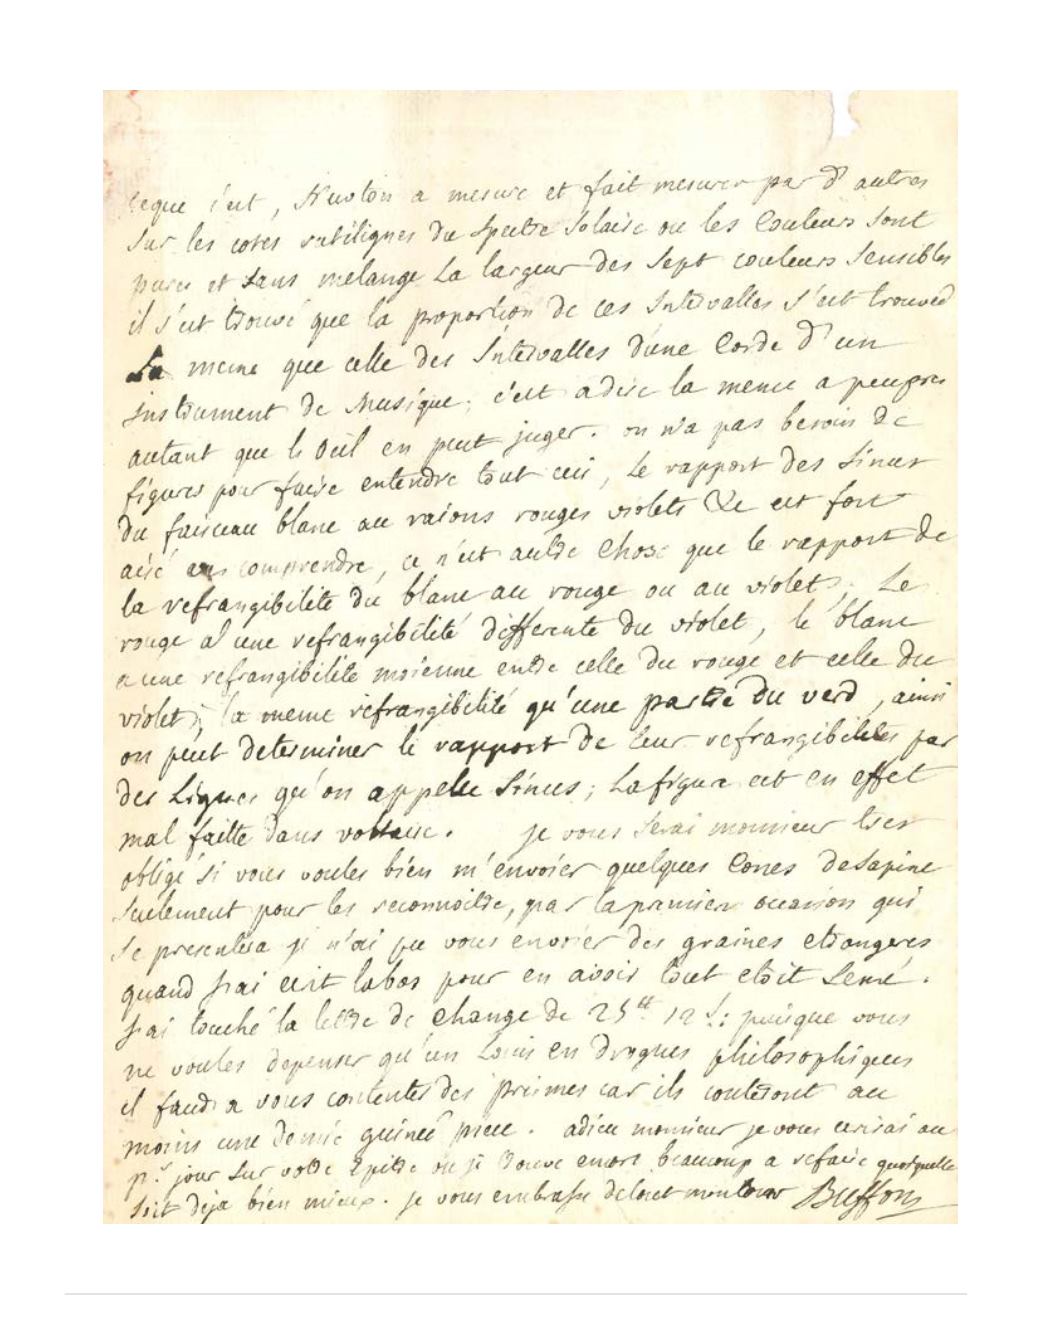 ceque c'est, Newton a mesuré et fait mesurer par d'autres
sur les cotés rectilignes du spectre solaire ou les couleurs sont
pures et sans melange la largeur des sept couleurs sensibles
il s'est trouvé que la proportion de ces Intervalles s'est trouvée
La meme que celle des Intervalles d'une Corde d'un
instrument de Musique; c'est adire la meme a peupres
autant que l'Oeil en peut juger. on n'a pas besoin de
figures pour faire entendre tout ceci, le rapport des Sinus
du faisceau blanc au raions rouges violets &c est fort
aisé a comprendre, ce n'est autre chose que le rapport de
la refrangibilité du blanc au rouge ou au violet; Le
rouge a une refrangibilité differente du violet, le blanc
a une refrangibilité moienne entre celle du rouge et celle du
violet; la meme refrangibilité qu'une partie du verd, ainsi
on peut determiner le rapport de leur refrangibilités par
des Lignes qu'on appelle Sinus; La figure est en effet
mal faitte dans voltaire. je vous serai monsieur tres
obligé si vous voules bien m'envoier quelques Cones de Sapins
seulement pour les reconnoitre, par la premiere occasion qui
se presentera je n'ai pu vous envoier des graines etrangeres
quand j'ai ecrit labas pour en avoir tout etoit Semé.
j'ai touché la lettre de change de 25 ^tt 12 s: puisque vous
ne voules depenser qu'un Louis en drogues philosophiques
il faudra vous contenter des prismes car ils couteront au
moins une demie guinée piece. adieu monsieur je vous ecrirai au
p.^r jour sur votre Epitre ou je trouve encore beaucoup a refaire quoiquelle
soit deja bien mieux. je vous embrasse de tout mon coeur Buffon